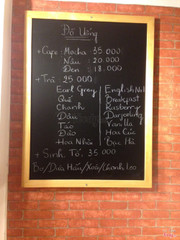 Đồ Uống
+ Cafe: Mocha 35 000
Nâu : 20.000
Đen : 18.000
+ Trà 25 000
Earl Grey / English
Quế / Breakfast
Chanh / Rasberry
Dâu / Darjeeling
Táo / Vanilla
Đào / Hoa Cúc
Hoa Nhài / Bạc Hà
+ Sinh Tố: 35.000
Bơ/Dưa Hấu/Xoài/Chanh Leo